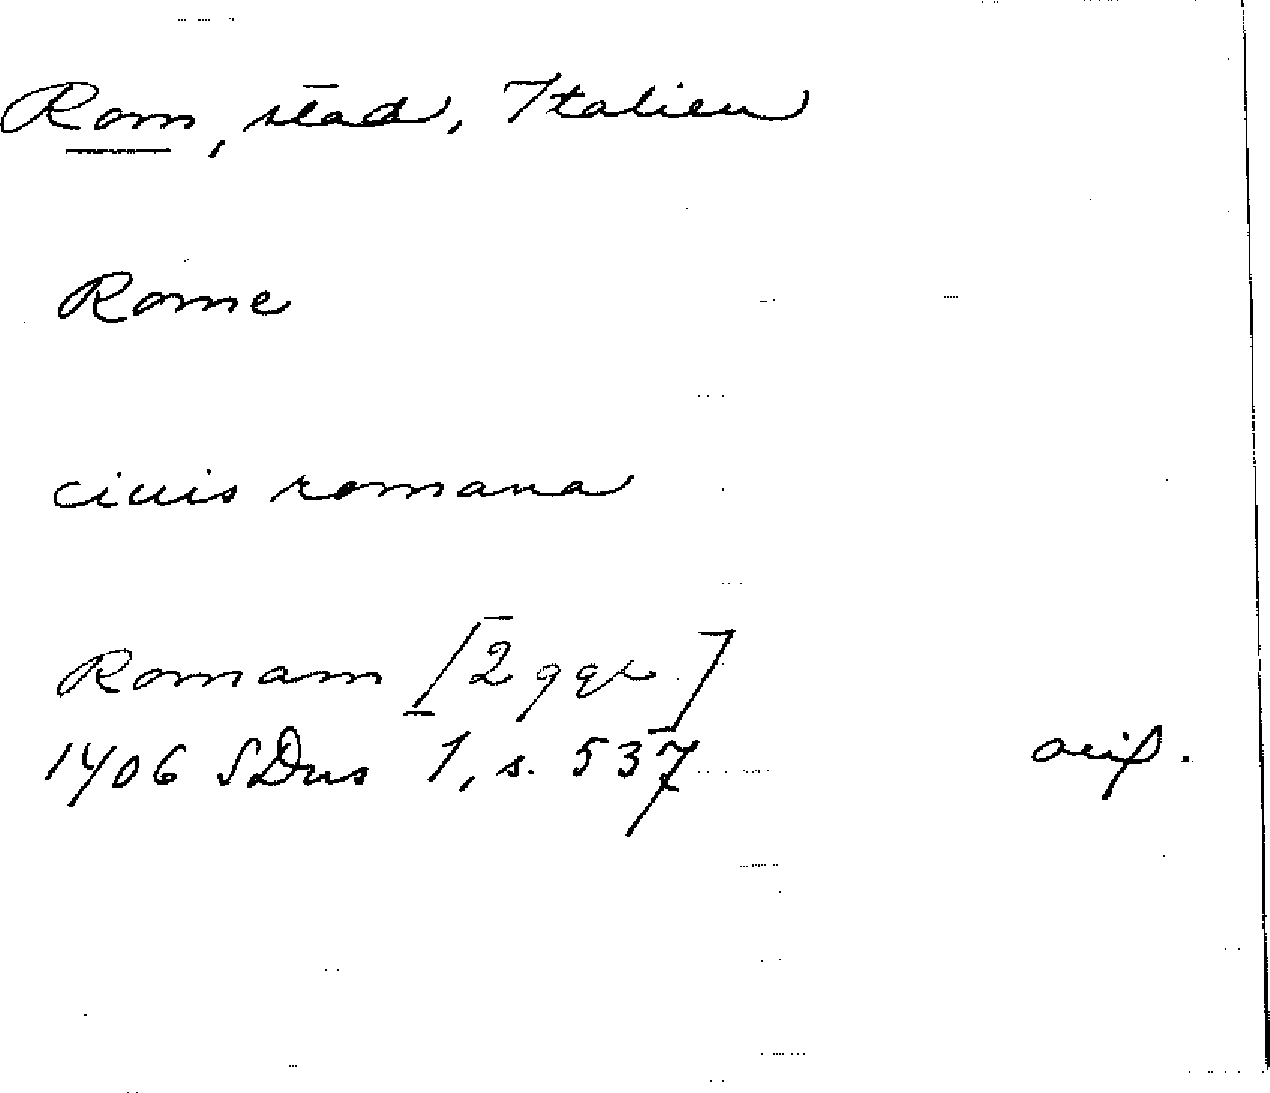 Rom, stad, Italien
Rome
ciuis romana
Romam [2 ggr]
1406 SDns 1, s. 537 avskr.